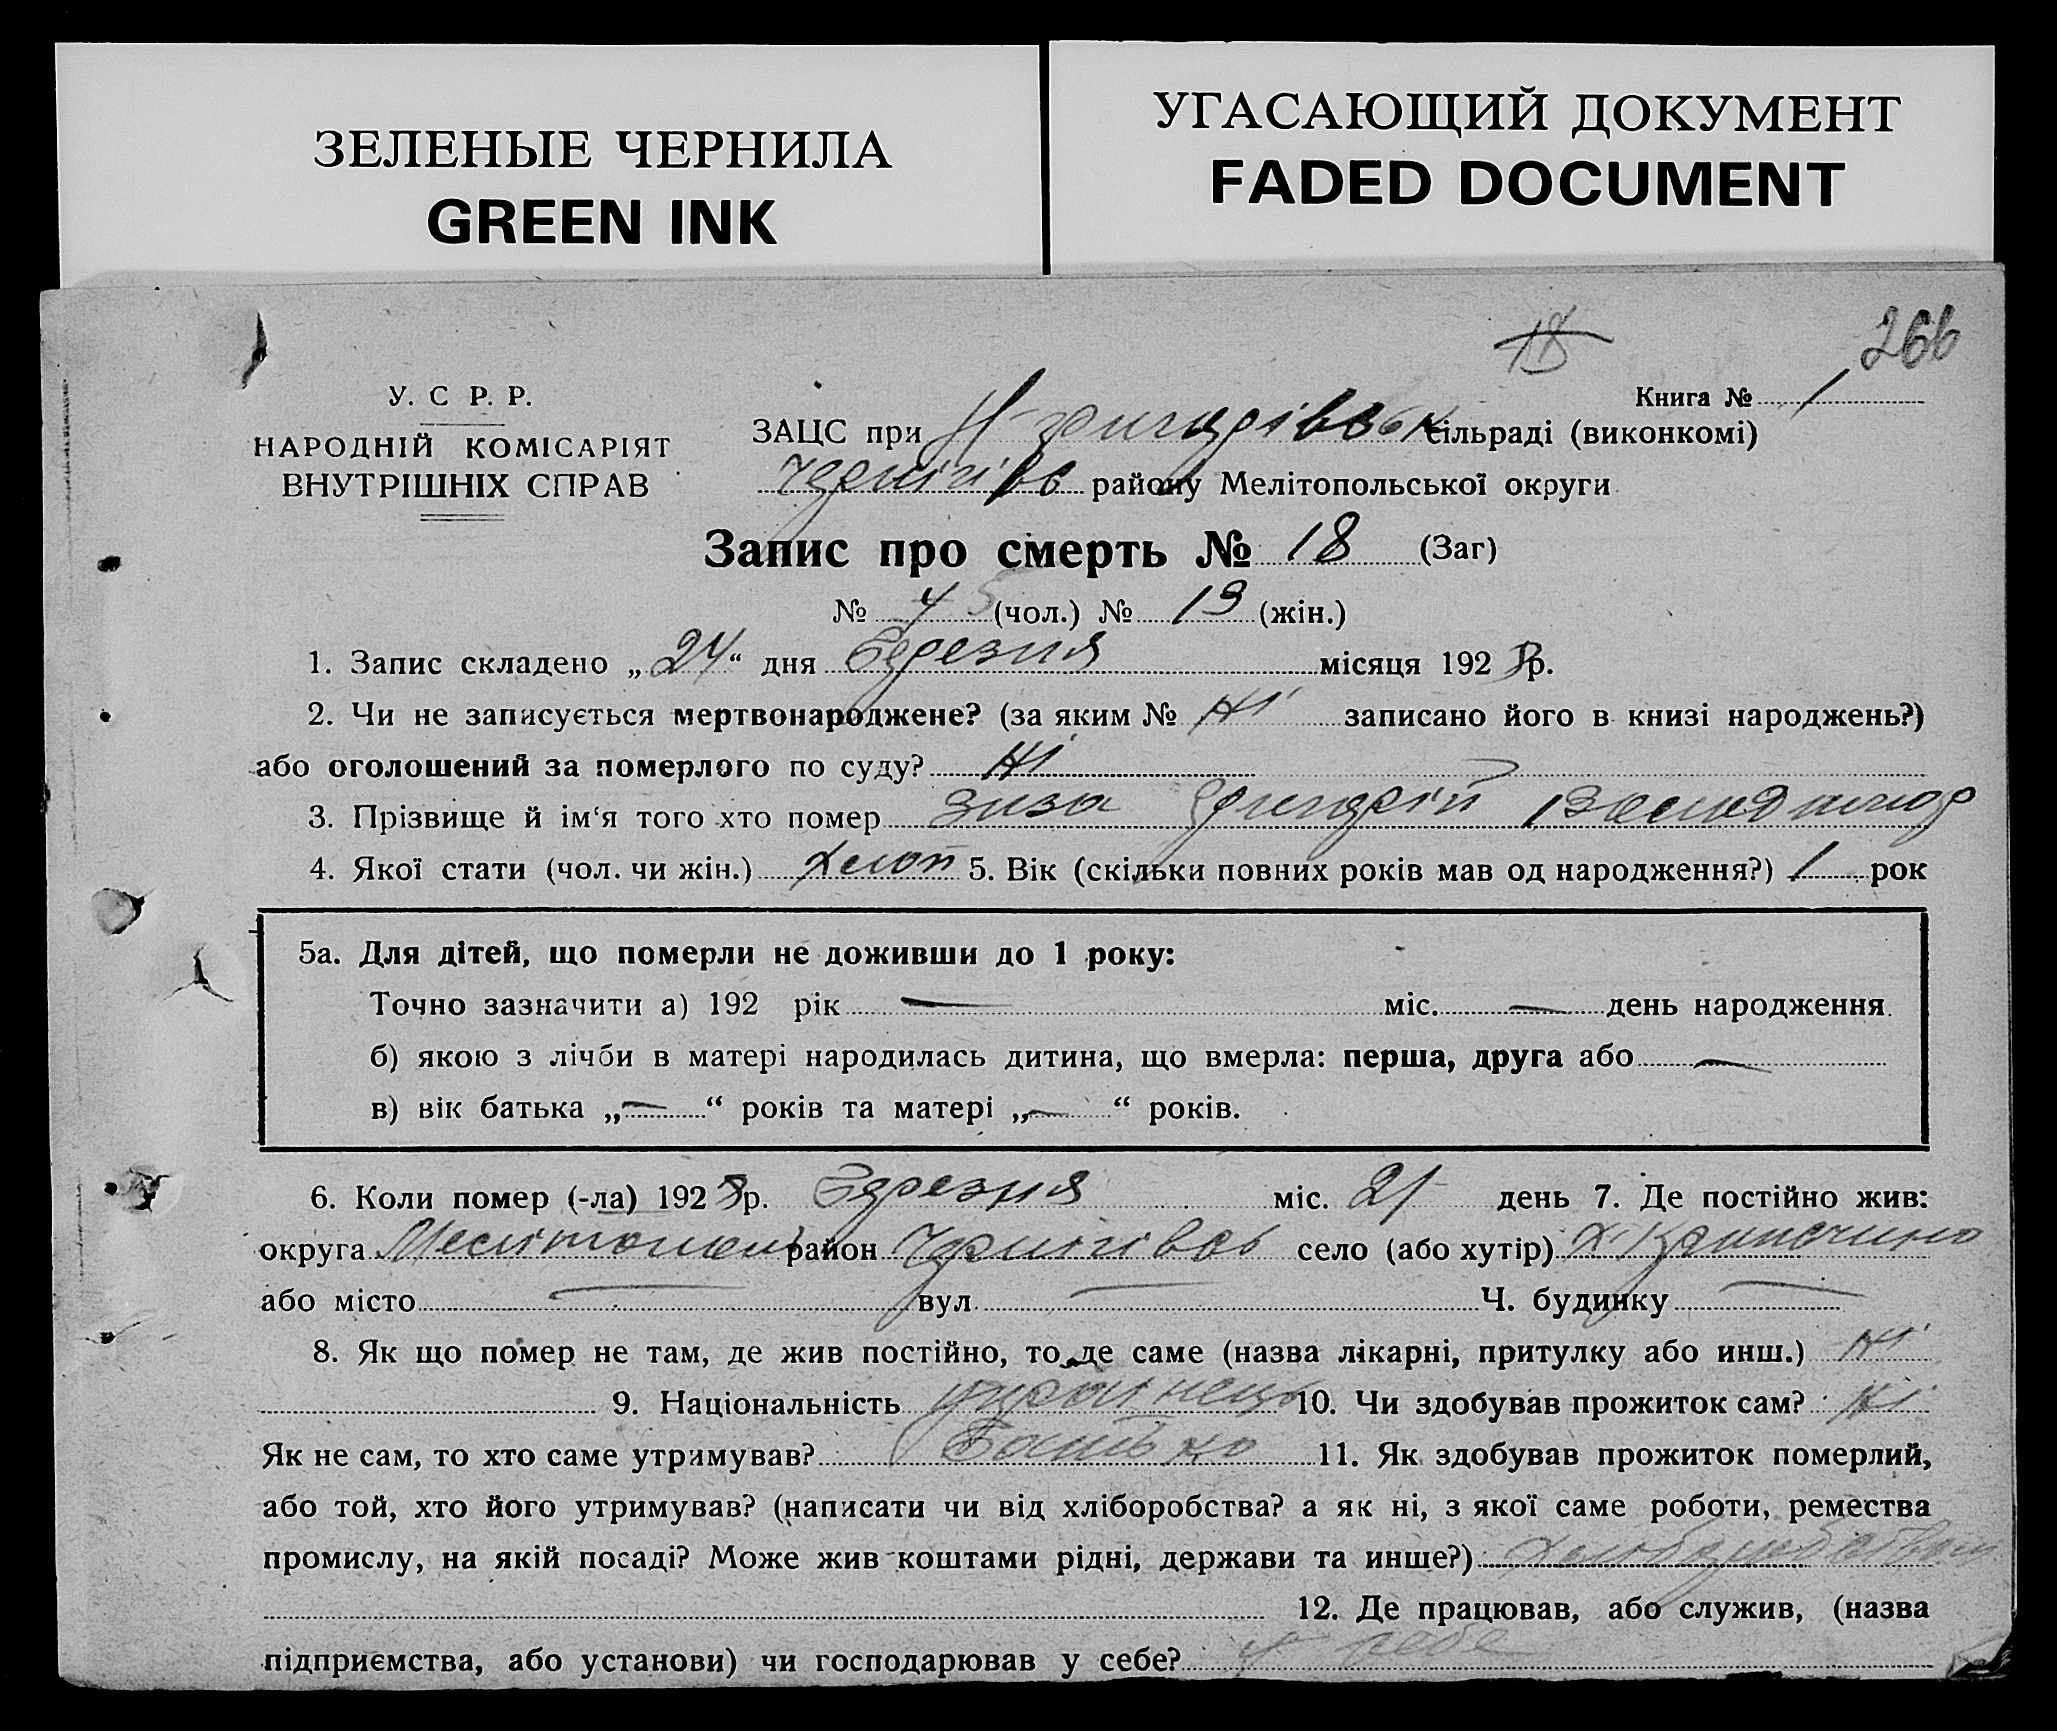 ЗЕЛЕНЫЕ ЧЕРНИЛА
GREEN INK
УГАСАЮЩИЙ ДОКУМЕНТ
FADED DOCUMENT
18
266
У. С Р. Р.
НАРОДНІЙ КОМІСАРІЯТ
ВНУТРІШНІХ СПРАВ
Книга № 1
ЗАЦС при сільраді (виконкомі)
Чернігівс району Мелітопольської округи
Запис про смерть № 18 (Заг)
№ (чол.) № 13 (жін.)
1. Запис складено „24“ дня Березня місяця 192 р.
2. Чи не записується мертвонароджене? (за яким № Ні записано його в книзі народжень?)
або оголошений за померлого по суду? Ні
3. Прізвище й ім‘я того хто помер
4. Якої стати (чол. чи жін.) Хлоп 5. Вік (скільки повних років мав од народження?) 1 рок
5а. Для дітей, що померли не доживши до 1 року:
Точно зазначити а) 192 рік — міс. — день народження
б) якою з лічби в матері народилась дитина, що вмерла: перша, друга або —
в) вік батька „—“ років та матері „—“ років.
6. Коли помер (-ла) 192 р. Березня міс. 21 день 7. Де постійно жив:
округа Мелітопол район Чернігівсь село (або хутір)
або місто — вул. — Ч. будинку —
8. Як що помер не там, де жив постійно, то де саме (назва лікарні, притулку або инш.) Ні
9. Національність українець 10. Чи здобував прожиток сам? Ні
Як не сам, то хто саме утримував? Батько 11. Як здобував прожиток померлий,
або той, хто його утримував? (написати чи від хліборобства? а як ні, з якої саме роботи, ремества
промислу, на якій посаді? Може жив коштами рідні, держави та инше?)
12. Де працював, або служив, (назва
підприємства, або установи) чи господарював у себе? у себе